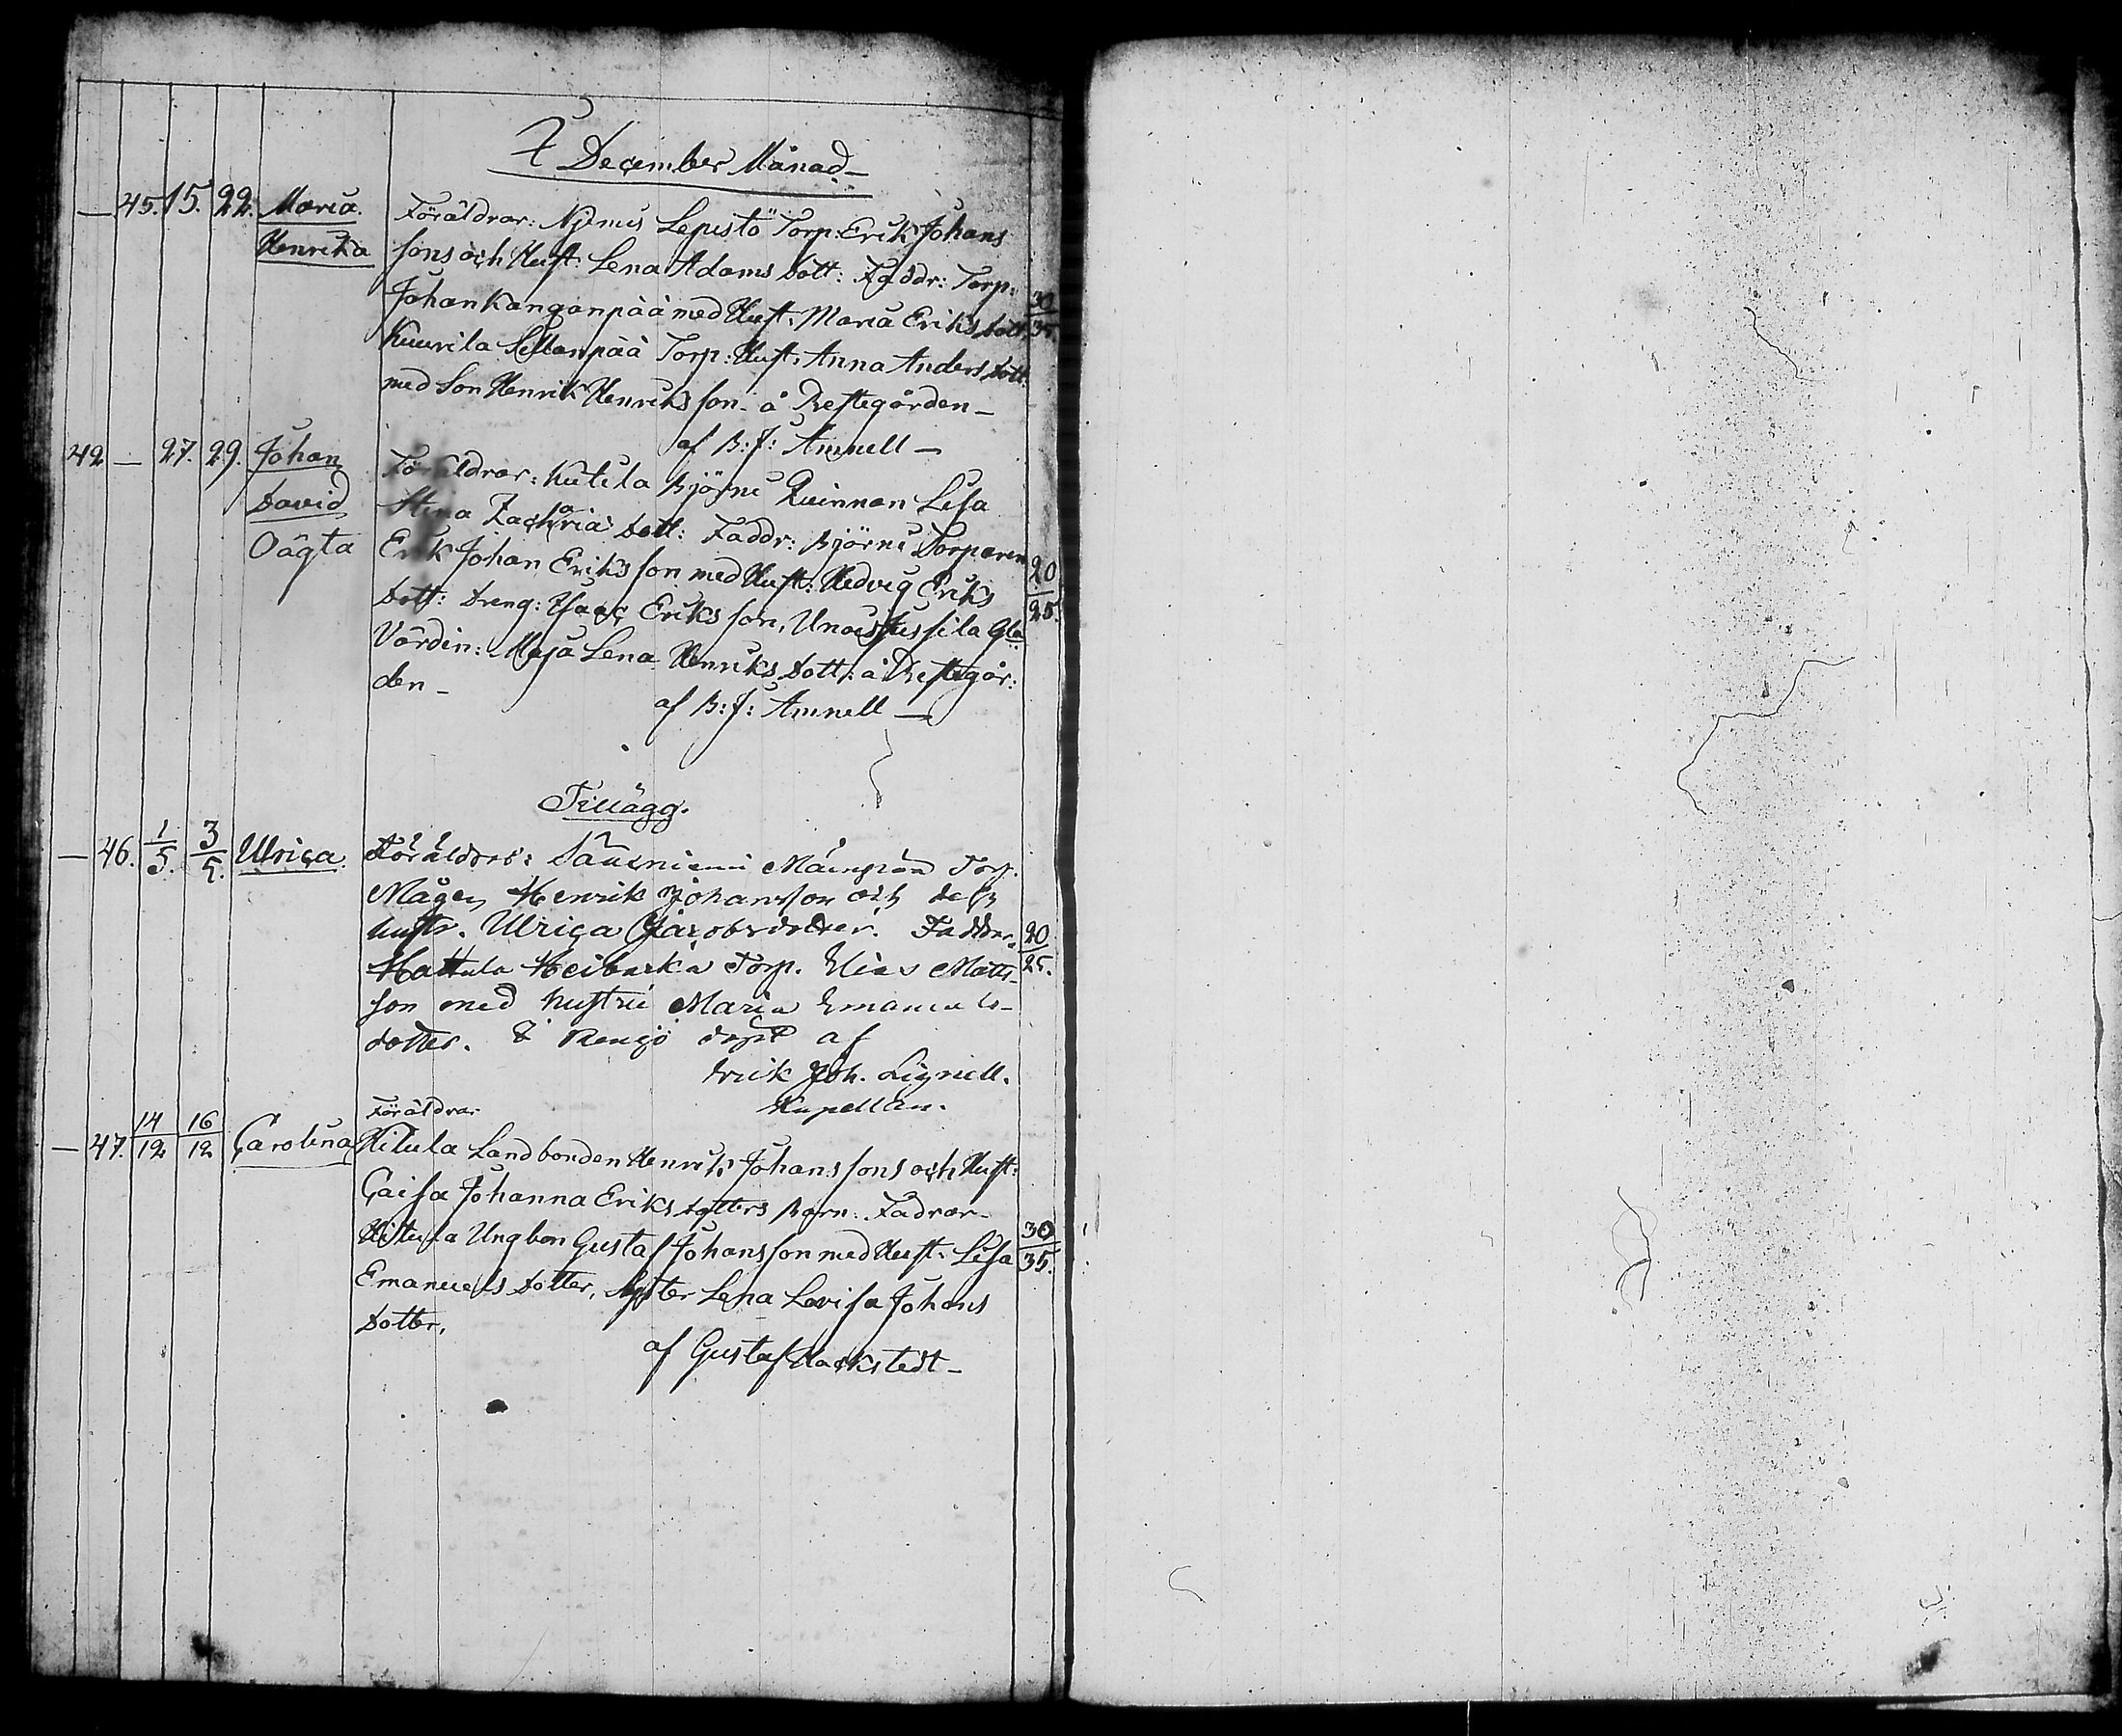 I December Månad
— 45. 15. 22. Maria Föräldrar: Njemis Lepistö Torp: Erik Johans
Henrika sons och Hust: Lena Adams dott: Faddr: Torp:
Johan Kanganpää med Hust: Maria Eriks dott: 30/35.
Kuurila Sillanpää Torp: Hust: Anna Anders dott:
med Son Henrik Henriks son å Prestegården —
af B: J: Amnell —
42 — 27. 29. Johan Föräldrar: Kutila Björni Qvinnan Lisa
David Stina Zachria dott: Faddr: Björni Torparen
Oägta Erik Johan Eriks son med Hust: Hedvig Eriks 20/25.
dott: Dreng: Isaac Eriks son, Jussila Gla
Värdin: Maja Lena Henriks dott: å Prestegår:
den —
af B: J: Amnell —
Tillägg.
— 46. 1/5. 3/5. Ulrica Föräldrar: Torp.
Mågen Henrik Johansson och dess
hustr. Ulrica Jacobsdotter. Faddrar 20/25.
Hattula Torp. Elias Matts-
son med hustru Maria Emanuels-
dotter. I döpt af
Erik Joh. Lignell.
Kapellan.
Föräldrar
— 47. 14/12 16/12 Carolina Hitula Landbonden Henrik Johans sons och Hust:
Caisa Johanna Eriks dotters Barn. Fadrar
Hitula Ungbon Gustaf Johans son med Hust: Lisa 30/35.
Emanuels dotter, Syster Lena Lovisa Johans
dotter,
af Gustaf Hackstedt —